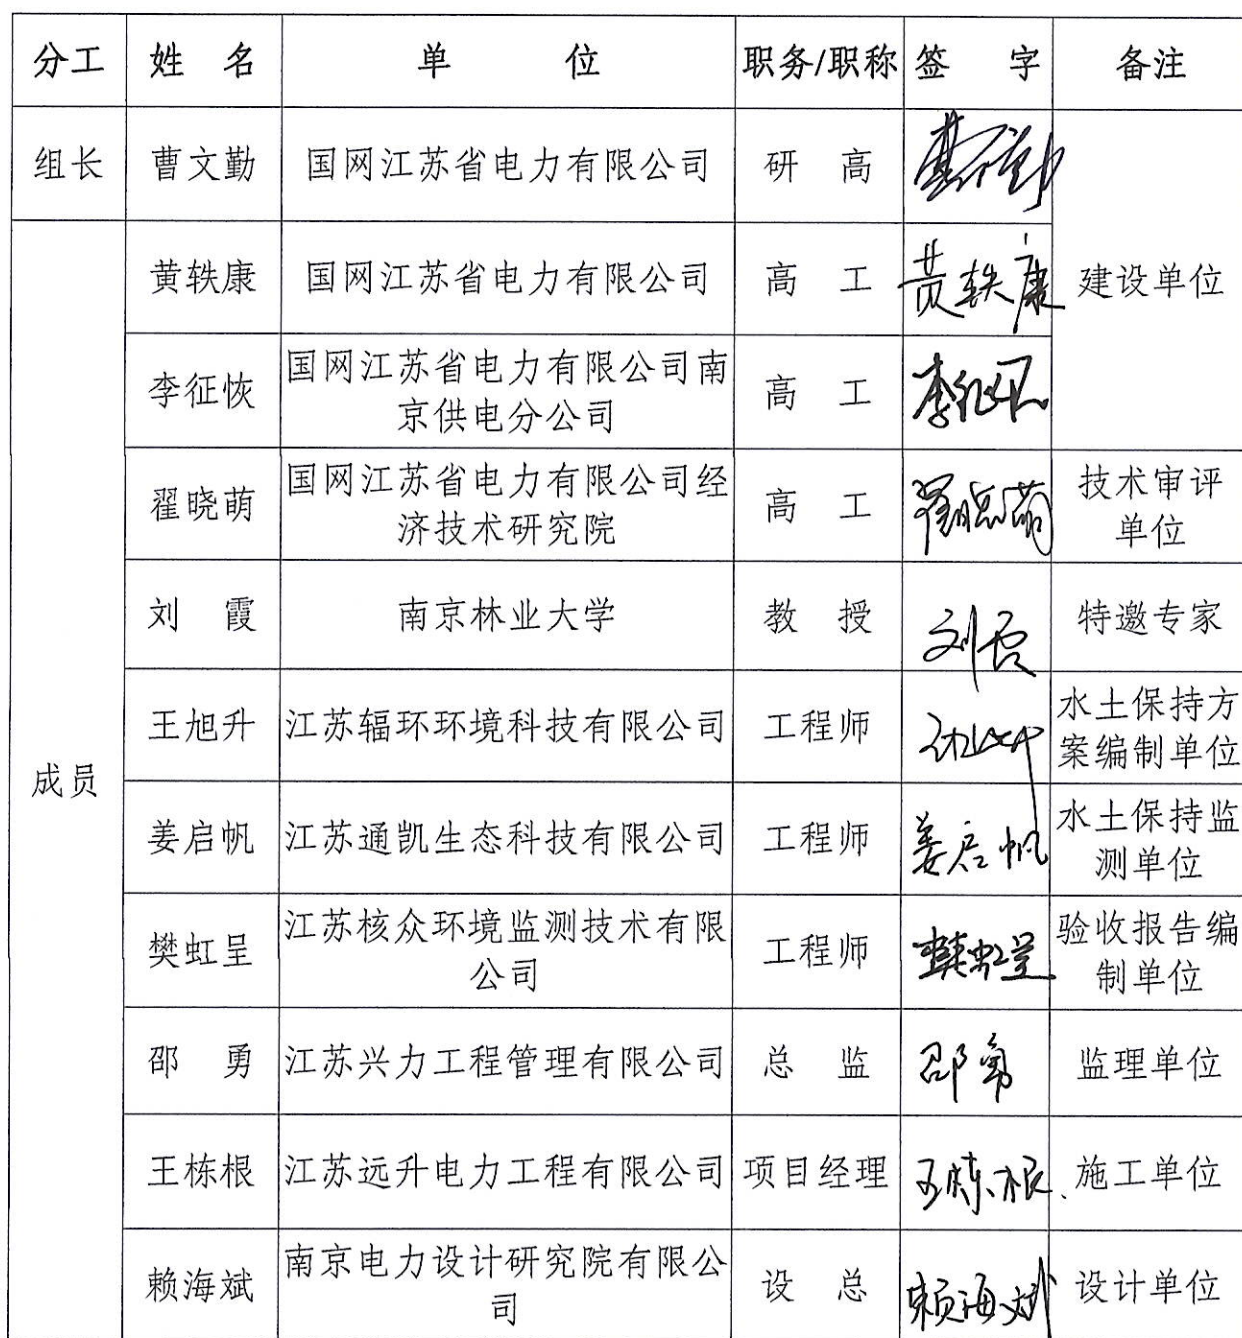 分工 姓 名 单 位 职务/职称 签 字 备注
组长 曹文勤 国网江苏省电力有限公司 研 高 曹文勤
黄轶康 国网江苏省电力有限公司 高 工 黄轶康 建设单位
李征恢 国网江苏省电力有限公司南
京供电分公司 高 工 李征恢
翟晓萌 国网江苏省电力有限公司经
济技术研究院 高 工 翟晓萌 技术审评
单位
刘 霞 南京林业大学 教 授 刘霞 特邀专家
成员
王旭升 江苏辐环环境科技有限公司 工程师 水土保持方
案编制单位
姜启帆 江苏通凯生态科技有限公司 工程师 姜启帆 水土保持监
测单位
樊虹呈 江苏核众环境监测技术有限
公司 工程师 樊虹呈 验收报告编
制单位
邵 勇 江苏兴力工程管理有限公司 总 监 邵勇 监理单位
王栋根 江苏远升电力工程有限公司 项目经理 王栋根 施工单位
赖海斌 南京电力设计研究院有限公
司 设 总 赖海斌 设计单位